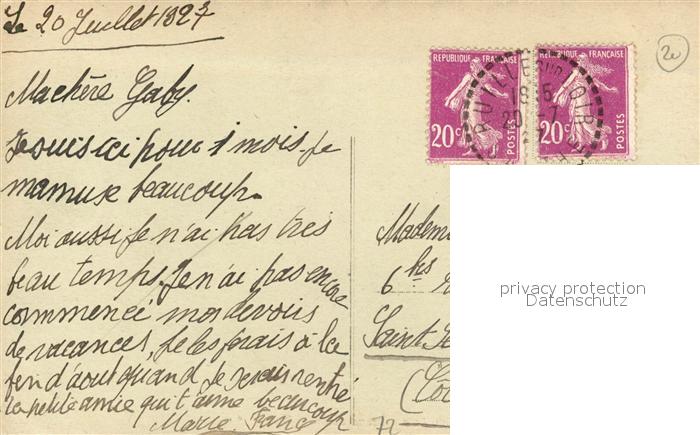 Le 20 Juillet 1927
Ma chère Gaby.
Je suis ici pour 1 mois. Je
mamuse beaucoup.
Moi aussi Je n'ai pas très
beau temps. Je n'ai pas encore
commencé mes devoirs
de vacances, Je les ferais à la
fin d'aout quand Je serais rentré
la petite amie qui t'aime beaucoup
Marie
REPUBLIQUE FRANÇAISE
20c
POSTES
REPUBLIQUE FRANÇAISE
20c
POSTES
2e
Madem
6
Saint
72
privacy protection
Datenschutz